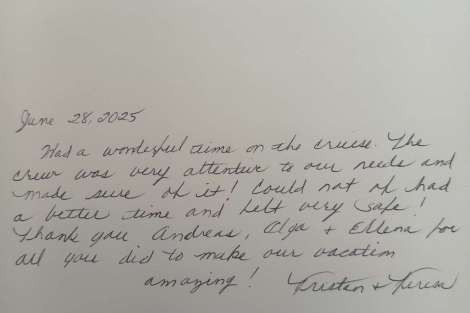 June 28, 2025
Had a wonderful time on the cruise. The
crew was very attentive to our needs and
made sure of it! Could not of had
a better time and felt very safe!
Thank you Andreas, Olga + Ellena for
all you did to make our vacation
amazing! Kristen +